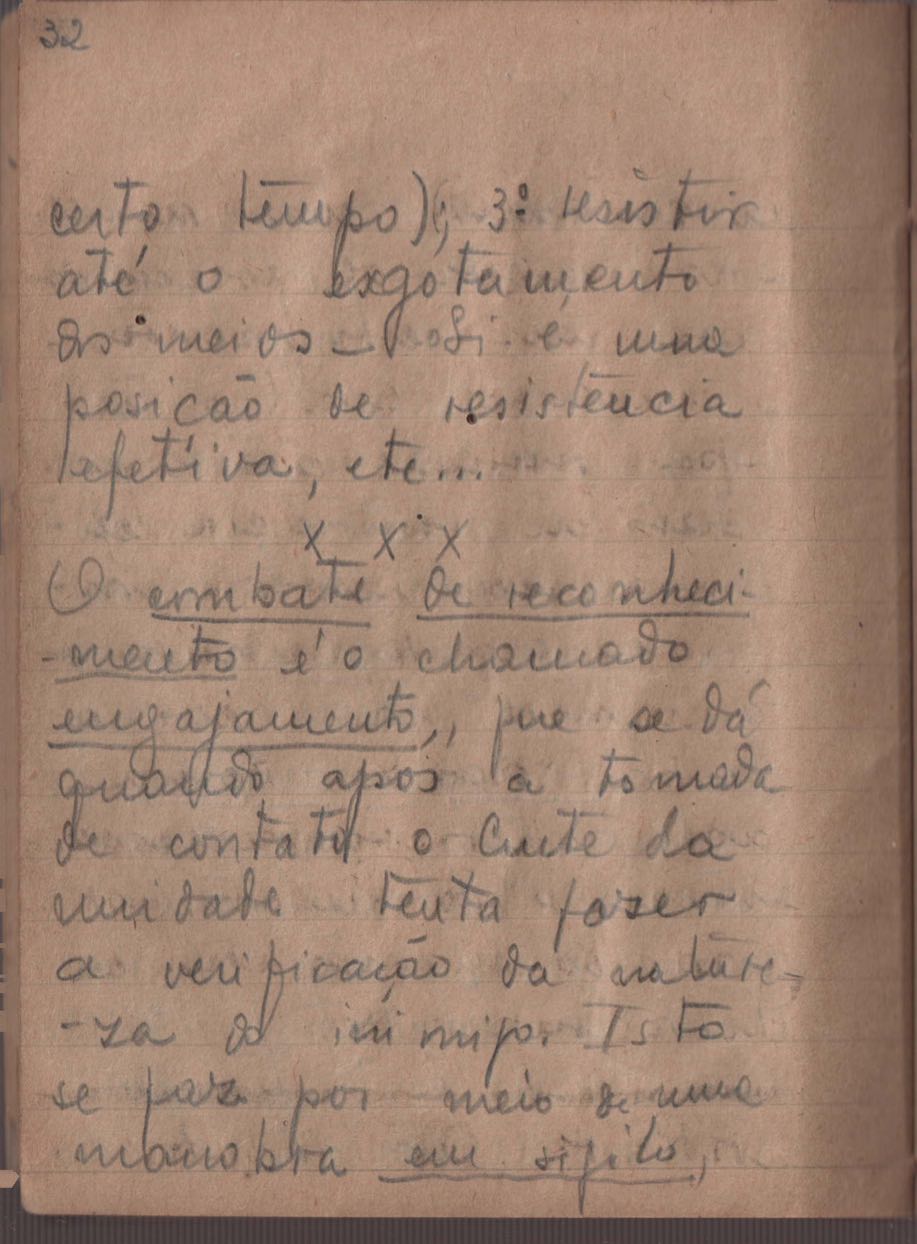 32
certo tempo); 3º: resistir
até o exgotamento
dos meios - Si é uma
posição de resistência
efetiva, etc...
X X X
O combate de reconheci-
-mento é o chamado
engajamento,, que se dá
quando após a tomada
de contato o Cmte da
unidade tenta fazer
a verificação da nature-
-za do inimigo. Isto
se faz por meio de uma
manobra em sigilo,